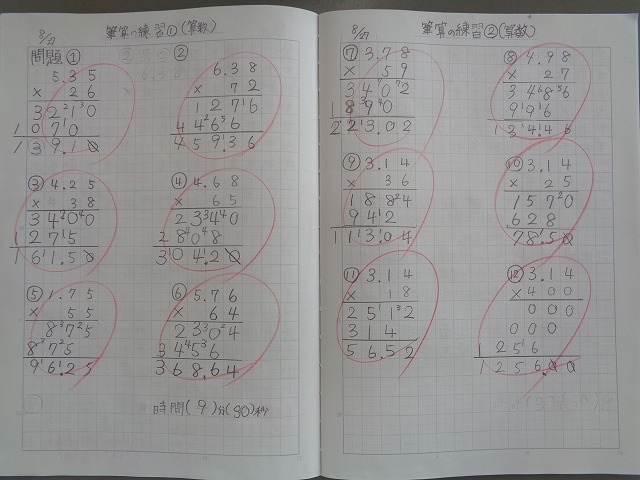 8/27 筆算の練習①(算数)
問題 ①
5.35
× 26
3210
1070
139.10
②
6.38
× 72
1276
4466
459.36
③ 4.25
× 38
3400
1275
161.50
④ 4.68
× 65
2340
2808
304.20
⑤ 1.75
× 55
875
875
96.25
⑥ 5.76
× 64
2304
3456
368.64
時間(9)分(30)秒
8/27 筆算の練習②(算数)
⑦ 3.78
× 59
3402
1890
223.02
⑧ 4.98
× 27
3486
996
134.46
⑨ 3.14
× 36
1884
942
113.04
⑩ 3.14
× 25
1570
628
78.50
⑪ 3.14
× 18
2512
314
56.52
⑫ 3.14
× 400
000
000
1256
1256.00